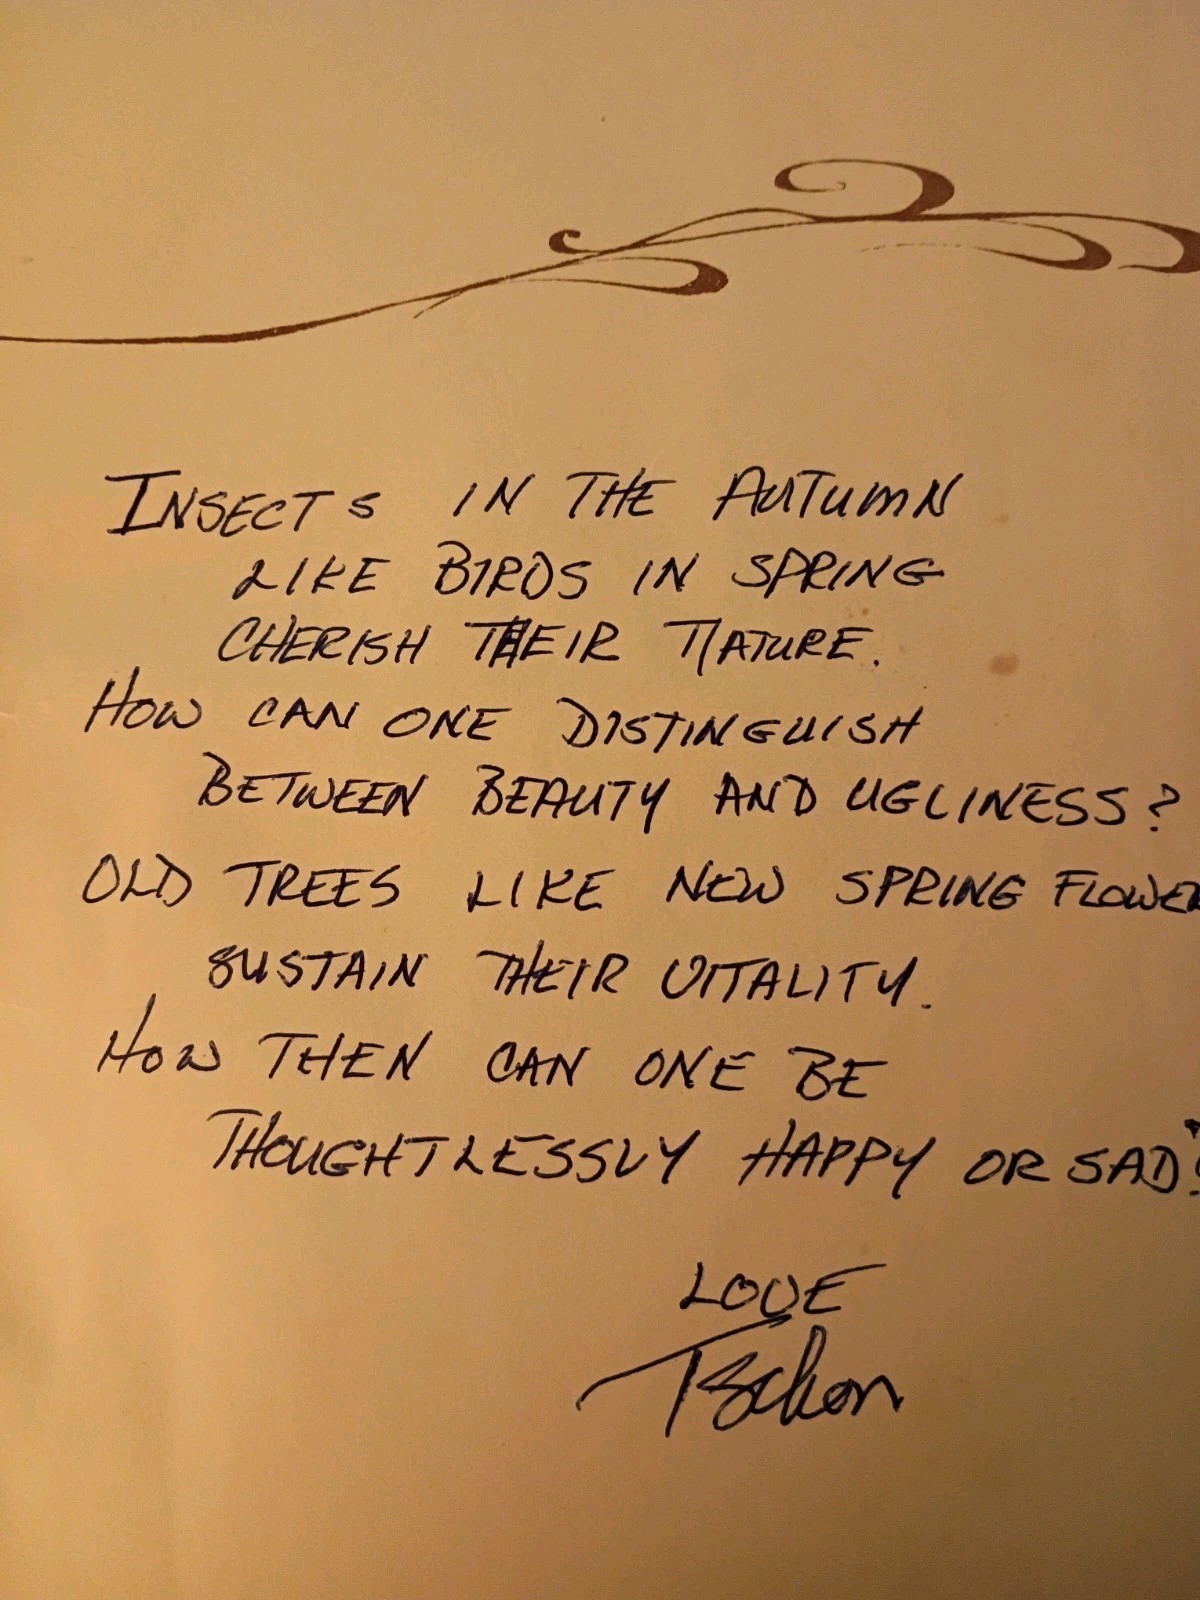 INSECTS IN THE AUTUMN
LIKE BIRDS IN SPRING
CHERISH THEIR NATURE.
HOW CAN ONE DISTINGUISH
BETWEEN BEAUTY AND UGLINESS?
OLD TREES LIKE NEW SPRING FLOWER
SUSTAIN THEIR VITALITY.
HOW THEN CAN ONE BE
THOUGHTLESSLY HAPPY OR SAD?
LOVE